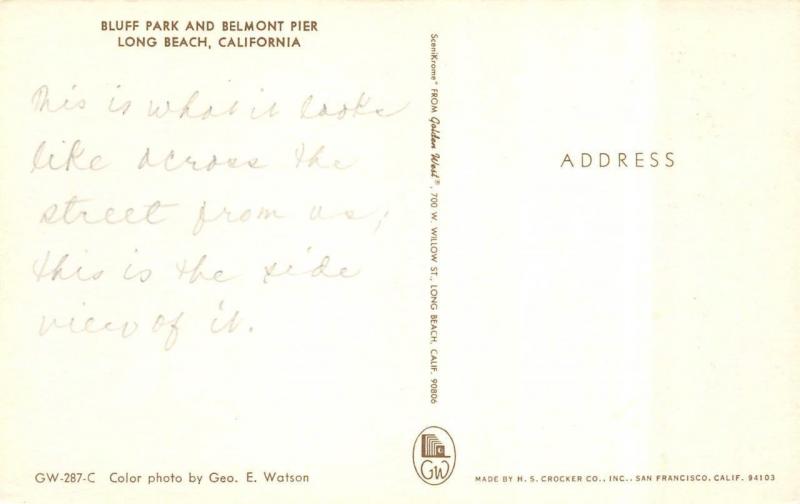 BLUFF PARK AND BELMONT PIER
LONG BEACH, CALIFORNIA
This is what it looks
like across the
street from us,
this is the side
view of it.
GW-287-C Color photo by Geo. E. Watson
SceniKrome® FROM Golden West®, 700 W. WILLOW ST., LONG BEACH, CALIF. 90806
GW
ADDRESS
MADE BY H. S. CROCKER CO., INC., SAN FRANCISCO, CALIF. 94103